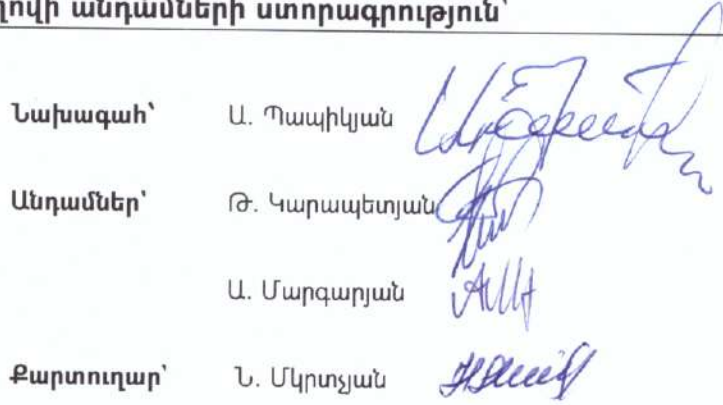 անդամների ստորագրություն՝
Նախագահ՝ Ա. Պապիկյան
Անդամներ՝ Թ. Կարապետյան
Ա. Մարգարյան
Քարտուղար՝ Ն. Մկրտչյան